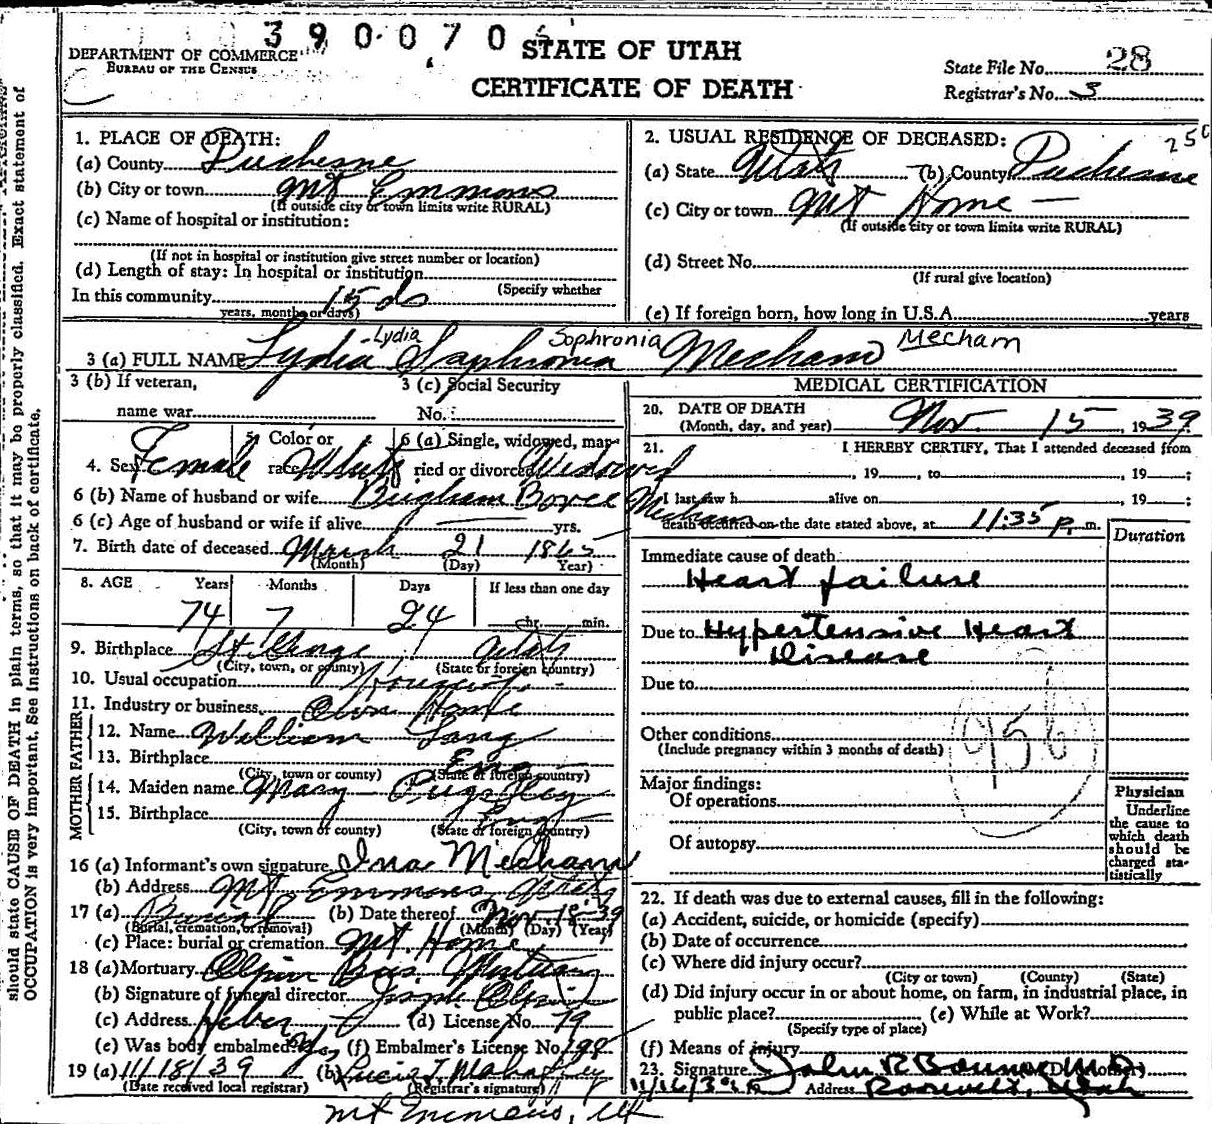 390070
STATE OF UTAH
CERTIFICATE OF DEATH
DEPARTMENT OF COMMERCE
BUREAU OF THE CENSUS
State File No. 28
Registrar's No. 3
should state CAUSE OF DEATH in plain terms, so that it may be properly classified. Exact statement of
OCCUPATION is very important. See instructions on back of certificate.
1. PLACE OF DEATH:
(a) County Duchesne
(b) City or town Mt Emmons
(If outside city or town limits write RURAL)
(c) Name of hospital or institution:
(If not in hospital or institution give street number or location)
(d) Length of stay: In hospital or institution
(Specify whether
In this community 15 ds
years, months or days)
2. USUAL RESIDENCE OF DECEASED:
(a) State Utah (b) County Duchesne
(c) City or town Mt Home
(If outside city or town limits write RURAL)
(d) Street No.
(If rural give location)
(e) If foreign born, how long in U.S.A. years
Lydia Sophronia Mecham
3 (a) FULL NAME Lydia Saphronia Mecham
3 (b) If veteran, name war
3 (c) Social Security No.
4. Sex Female 5. Color or race White 6 (a) Single, widowed, married or divorced Widowed
6 (b) Name of husband or wife Brigham Bovee Mecham
6 (c) Age of husband or wife if alive yrs.
7. Birth date of deceased March 21 1865
(Month) (Day) Year)
8. AGE Years Months Days If less than one day
74 7 24 hr. min.
9. Birthplace St. George Utah
(City, town, or county) (State or foreign country)
10. Usual occupation Housewife
11. Industry or business Own Home
FATHER
12. Name William Lang
13. Birthplace Eng
(City, town or county) (State or foreign country)
MOTHER
14. Maiden name Mary Pugsley
15. Birthplace Eng
(City, town of county) (State of foreign country)
16 (a) Informant's own signature Ina Mecham
(b) Address Mt. Emmons Utah
17 (a) Burial (b) Date thereof Nov 18-39
(Burial, cremation, or removal) (Month) (Day) (Year)
(c) Place: burial or cremation Mt. Home
18 (a) Mortuary Olpin Bros. Mortuary
(b) Signature of funeral director Joseph Olpin
(c) Address Heber (d) License No. 79
(e) Was body embalmed? Yes (f) Embalmer's License No. 198
19 (a) 11/18/39 (b) Lucia T. Mahaffey
(Date received local registrar) (Registrar's signature)
Mt Emmons, Ut
MEDICAL CERTIFICATION
20. DATE OF DEATH
(Month, day, and year) Nov. 15, 1939
21. I HEREBY CERTIFY, That I attended deceased from
, 19 , to , 19 ;
I last saw h alive on , 19 ;
death occurred on the date stated above, at 11:35 p. m.
Duration
Immediate cause of death
Heart failure
Due to Hypertensive Heart
Disease
Due to
Other conditions
(Include pregnancy within 3 months of death)
95b
Major findings:
Of operations
Of autopsy
Physician
Underline
the cause to
which death
should be
charged sta-
tistically
22. If death was due to external causes, fill in the following:
(a) Accident, suicide, or homicide (specify)
(b) Date of occurrence
(c) Where did injury occur?
(City or town) (County) (State)
(d) Did injury occur in or about home, on farm, in industrial place, in
public place? (e) While at Work?
(Specify type of place)
(f) Means of injury
23. Signature John R Bourne M.D.
11/16/39 Address Roosevelt, Utah